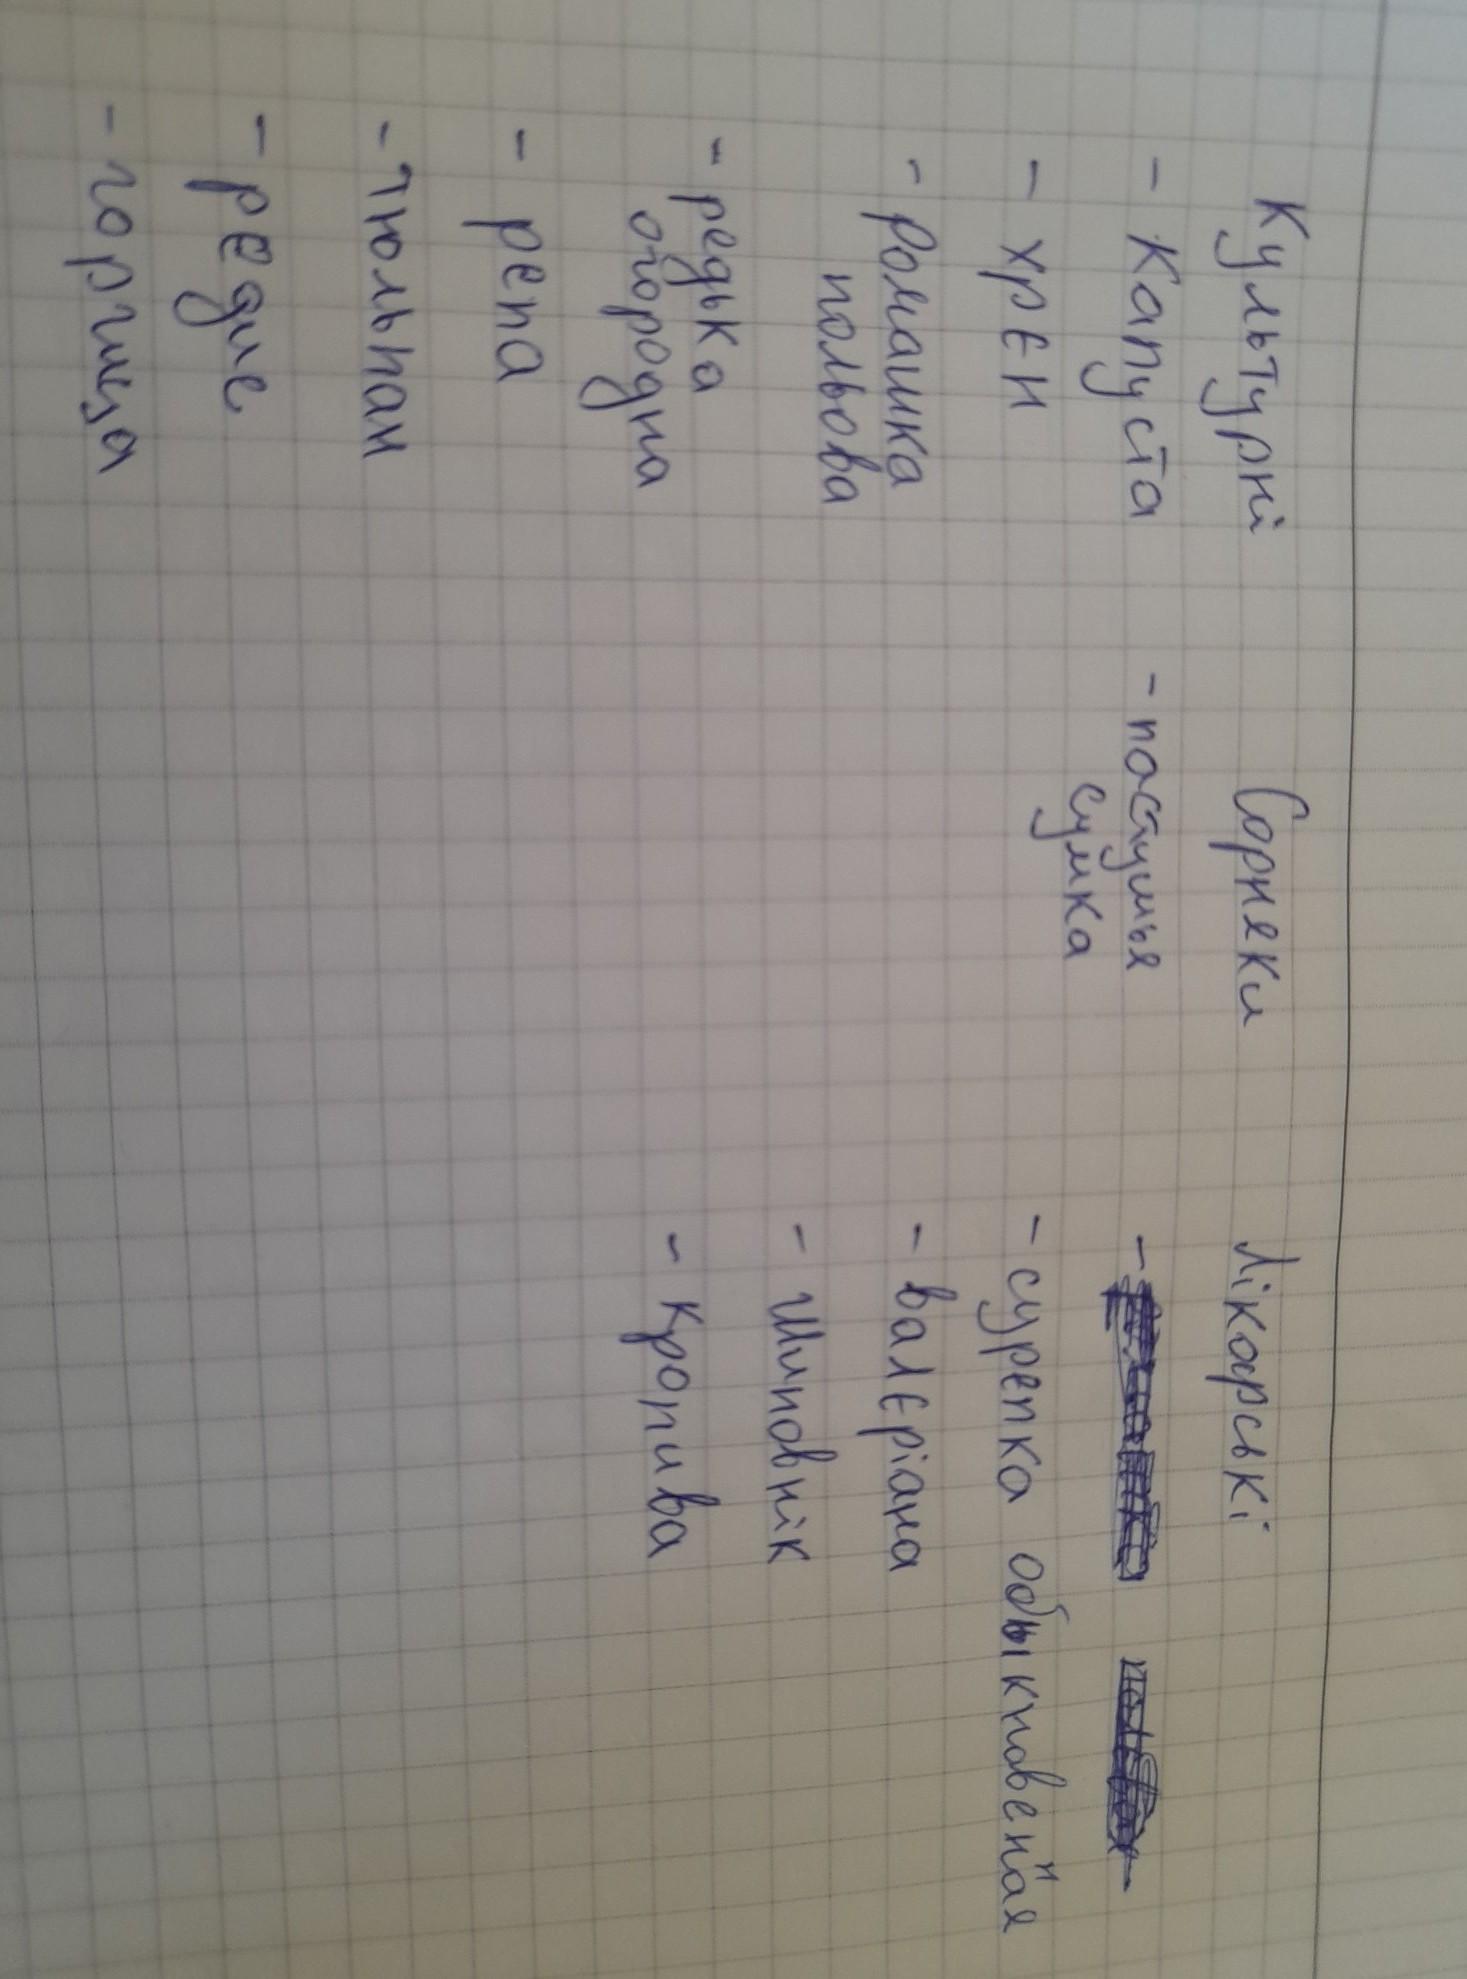 Культурні
- Капуста
- хрен
- Ромашка
польова
- редька
огородна
- репа
- тюльпан
- редис
- горчица
Сорняки
- пастушья
сумка
Лікарські
-
- сурепка обыкновенная
- валєріана
- Шиповнік
- Кропива